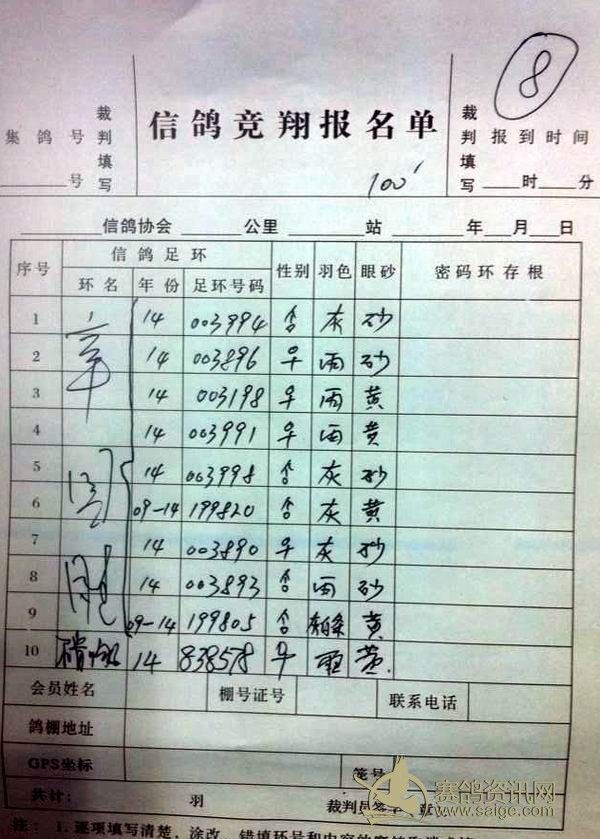 8
集鸽号
裁判填写
信鸽竞翔报名单
裁判填写
报到时间
______号
____时____分
100'
______信鸽协会 ______公里 ______站 ____年____月____日
序号 信鸽足环 性别 羽色 眼砂 密码环存根
环名 年份 足环号码
1 14 003994 灰 砂
2 14 003896 雨 砂
3 14 003198 雨 黄
4 14 003991 雨 黄
5 14 003998 灰 砂
6 09-14 199820 灰 黄
7 14 003890 灰 砂
8 14 003893 雨 砂
9 09-14 199805 黄
10 14 838578 雨 黄
会员姓名 棚号证号 联系电话
鸽棚地址
GPS坐标 笼号
共计: 羽 裁判员签字
赛鸽资讯网
www.saige.com
注:1.逐项填写清楚,涂改、错填环号和内容的